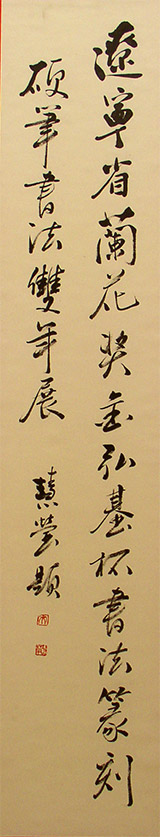 遼寧省蘭花奖金弘基杯書法篆刻
硬筆書法雙年展
慧莹題